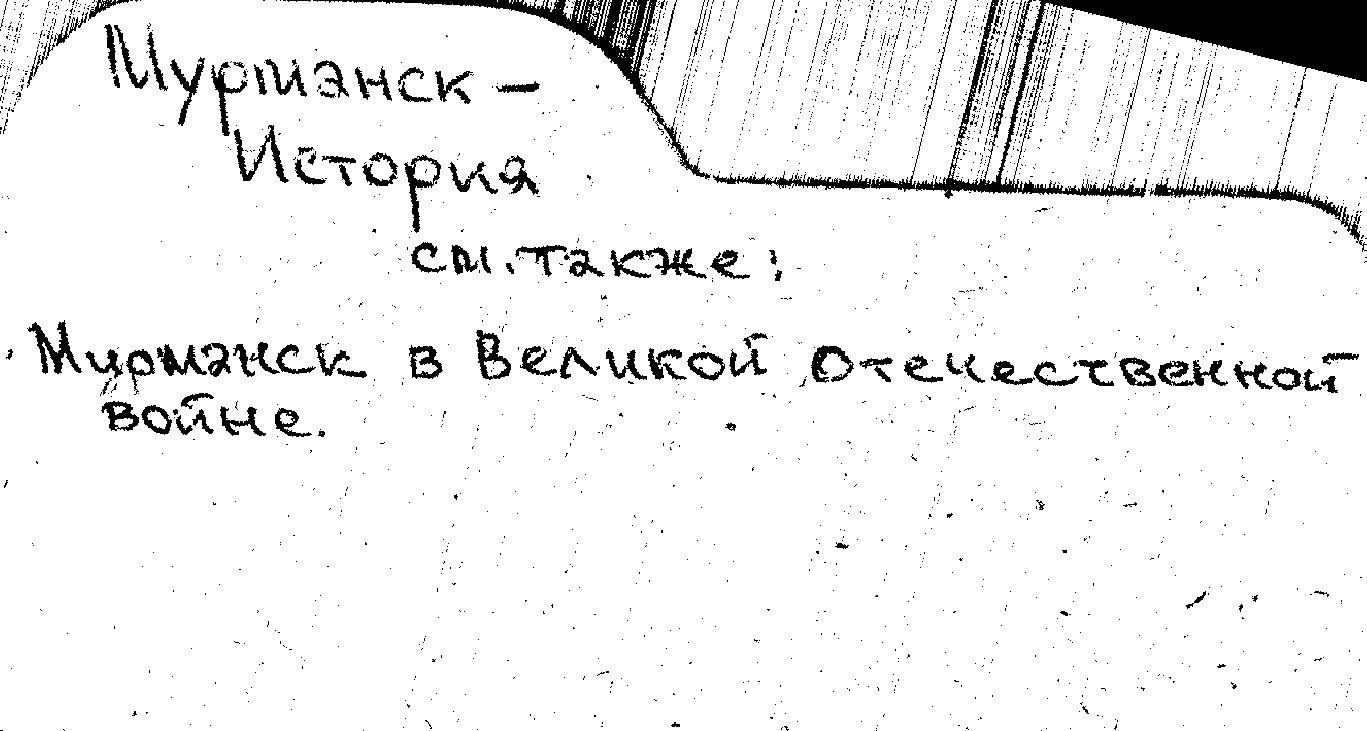 Мурманск –
История
см. также:
Мурманск в Великой Отечественной
войне.